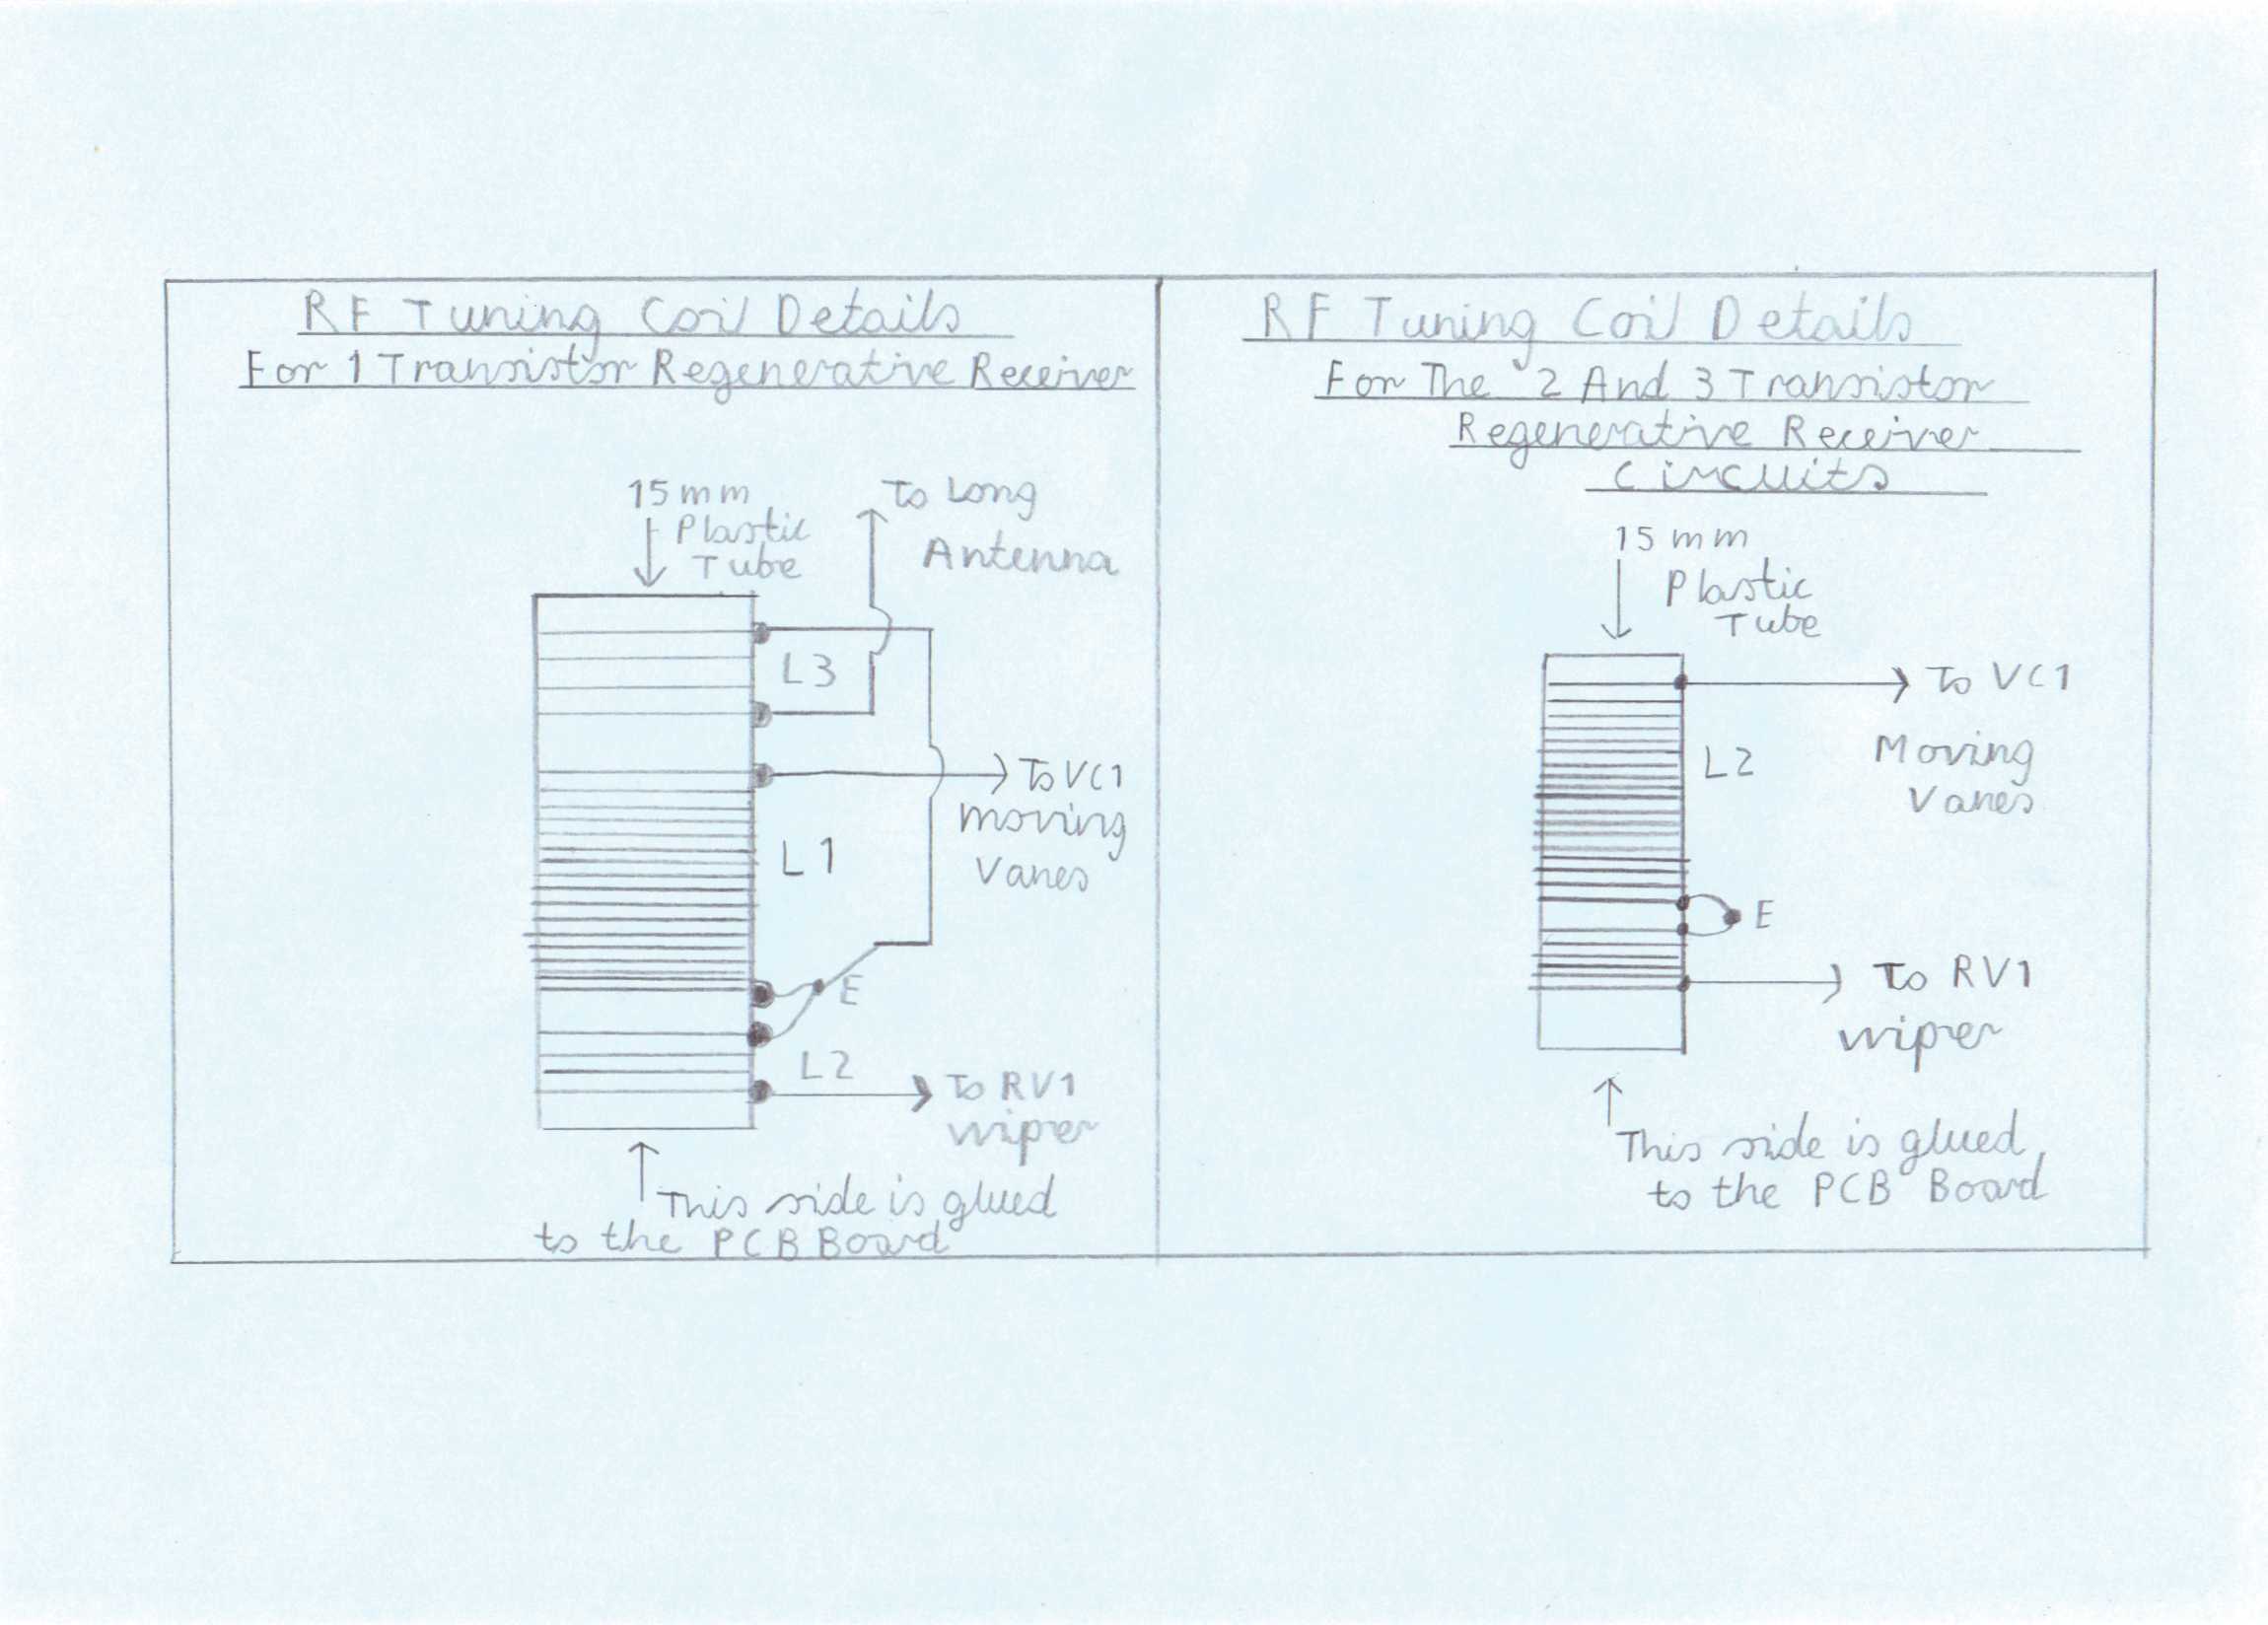 RF Tuning Coil Details
For 1 Transistor Regenerative Receiver
15mm
Plastic
Tube
To Long
Antenna
L3
To VC1
Moving
Vanes
L1
E
L2
To RV1
wiper
This side is glued
to the PCB Board
RF Tuning Coil Details
For The 2 And 3 Transistor
Regenerative Receiver
Circuits
15 mm
Plastic
Tube
To VC1
Moving
Vanes
L2
E
To RV1
wiper
This side is glued
to the PCB Board